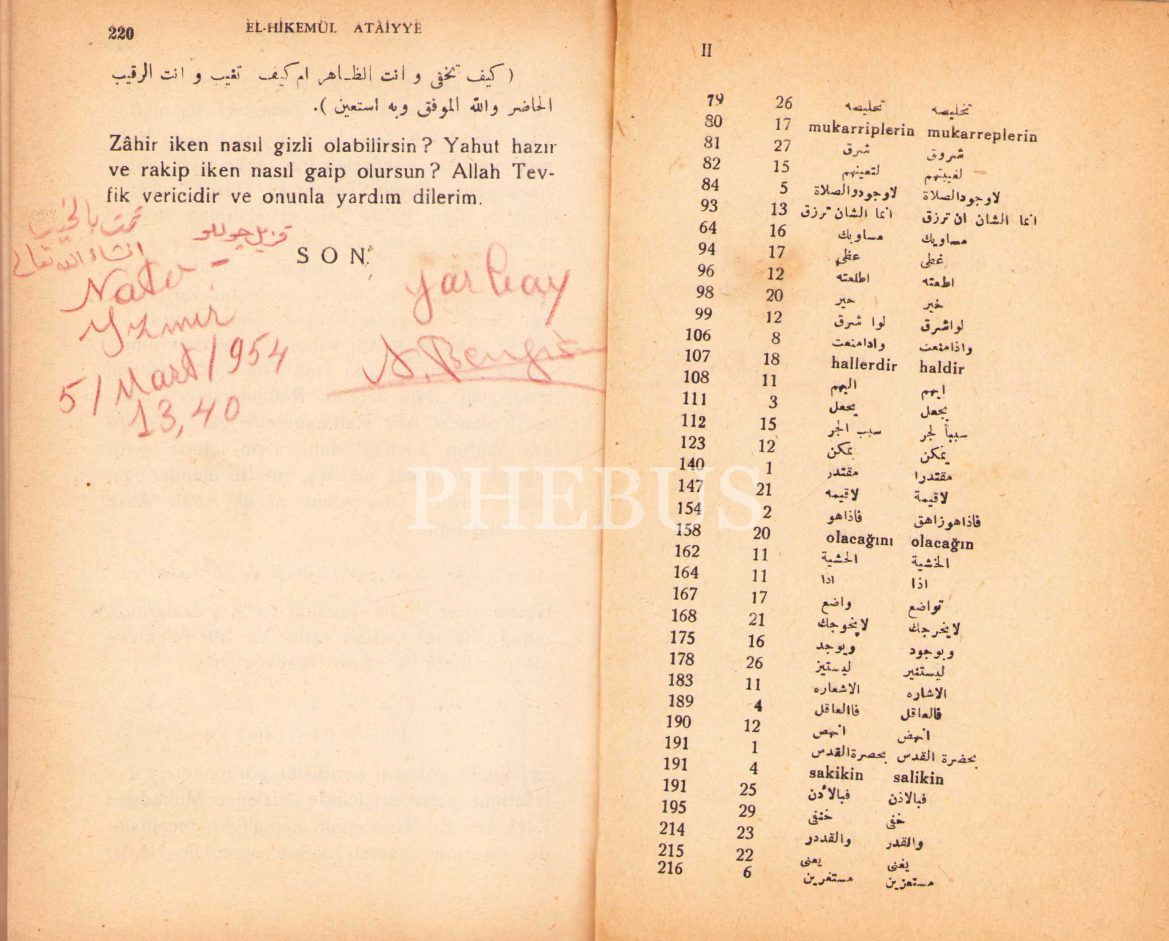 220
EL-HİKEMÜL ATÂİYYE
( كيف تخفى و انت الظاهر ام كيف تغيب و انت الرقيب
الحاضر والله الموفق وبه استعين ).
Zâhir iken nasıl gizli olabilirsin? Yahut hazır
ve rakip iken nasıl gaip olursun? Allah Tev-
fik vericidir ve onunla yardım dilerim.
SON
تمت بالخير
انشاء الله تعالى
Nato -
Yzmir
5/Mart/954
13,40
Yarbay
PHEBUS
II
79 26 تحليصه تخليصه
80 17 mukarriplerin mukarreplerin
81 27 شرق شروق
82 15 لتعينهم لغيبتهم
84 5 لاوجودوالصلاة لاوجودالصلاة
93 13 انما الشان ترزق انما الشان ان ترزق
64 16 مساوبك مساويك
94 17 عظى غطى
96 12 اطلعته اطعته
98 20 حير خير
99 12 لوا شرق لواشرق
106 8 وادامنعت واذامنعت
107 18 hallerdir haldir
108 11 اليهم ايهم
111 3 يحعل يجعل
112 15 سبب الجر سبباً لجر
123 12 تمكن يمكن
140 1 مقتدر مقتدرا
147 21 لاقيمه لاقيمة
154 2 فاذاهو فاذاهوزاهق
158 20 olacağını olacağın
162 11 الحشية الخشية
164 11 ادا اذا
167 17 واضع تواضع
168 21 لايخوجك لايخرجك
175 16 ويوجد وبوجود
178 26 ليستيز ليستنير
183 11 الاشعاره الاشاره
189 4 فاالعاقل فالعاقل
190 12 انهص انهض
191 1 بحصرةالقدس بحضرة القدس
191 4 sakikin salikin
191 25 فبالأدن فبالاذن
195 29 خثفى خفى
214 23 والقددر والقدر
215 22 يعنى يغنى
216 6 مستغرين مستعزين